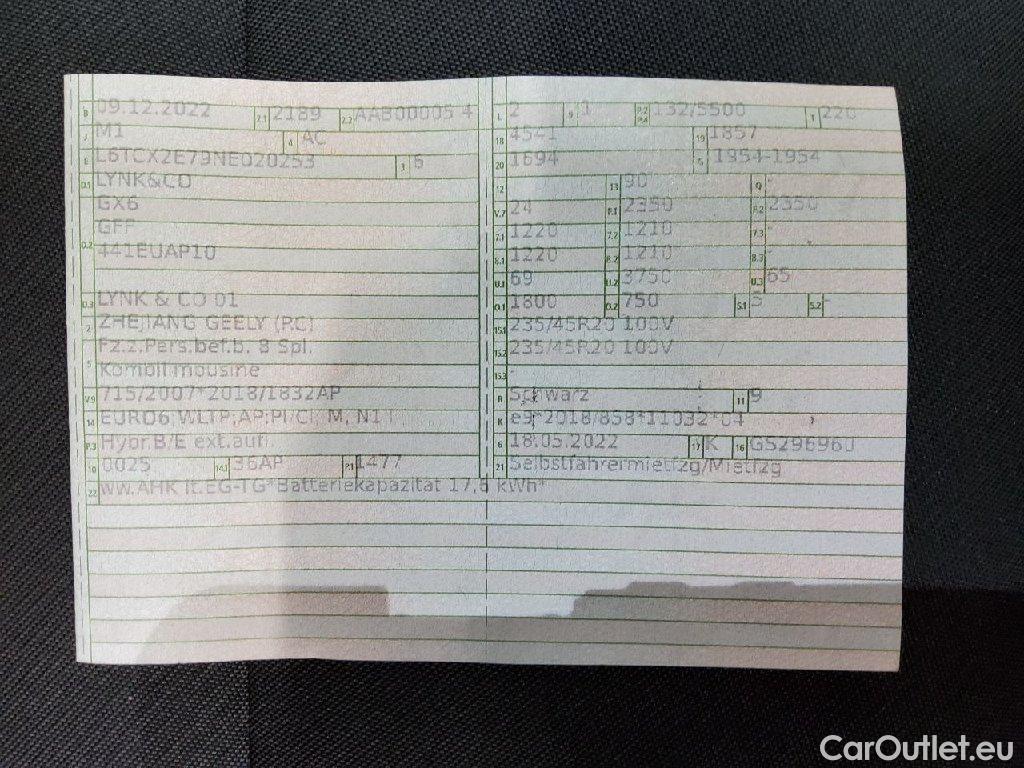 B 09.12.2022 2.1 2189 2.2 AAB00005 4
J M1 4 AC
E L6TCX2E79NE020253 3 6
D.1 LYNK&CO
GX6
D.2 GFF
441EUAP10
D.3 LYNK & CO 01
2 ZHEJIANG GEELY (RC)
5 Fz.z.Pers.bef.b. 8 Spl.
Kombilimousine
V.9 715/2007*2018/1832AP
14 EURO6 WLTP,AP;PI/CI; M, N1 I
P.3 Hybr.B/E ext.aufl.
10 0025 14.1 36AP P.1 1477
22 WW.AHK lt.EG-TG*Batteriekapazität 17,6 kWh*
L 2 9 1 P.2 P.4 132/5500 T 220
18 4541 19 1857
20 1694 G 1954-1954
12 13 90 Q -
V.7 24 F.1 2350 F.2 2350
7.1 1220 7.2 1210 7.3 -
8.1 1220 8.2 1210 8.3 -
U.1 69 U.2 3750 U.3 65
O.1 1800 O.2 750 S.1 5 S.2 -
15.1 235/45R20 100V
15.2 235/45R20 100V
15.3 -
R Schwarz 11 9
K e9*2018/858*11032*04
6 18.05.2022 17 K 16 GS296960
21 Selbstfahrermietfzg/Mietfzg
CarOutlet.eu